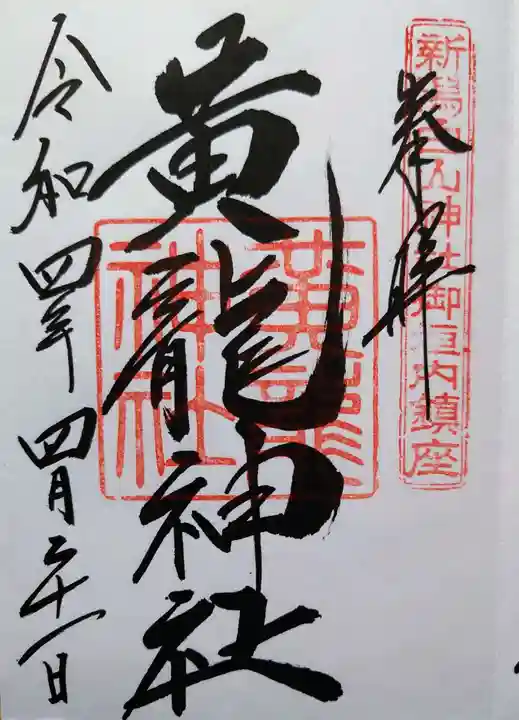 奉拝
新潟白山神社御垣内鎮座
黄龍神社
黄龍
神社
令和四年四月二十一日